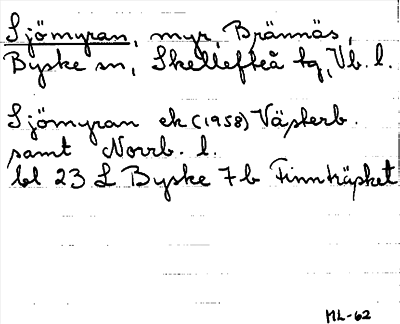 Sjömyran, myr, Brännäs,
Byske sn, Skellefteå tg, Vb. l.
Sjömyran ek (1958) Västerb.
samt Norrb. l.
bl 23 L Byske 7b Finnträsket
ML-62